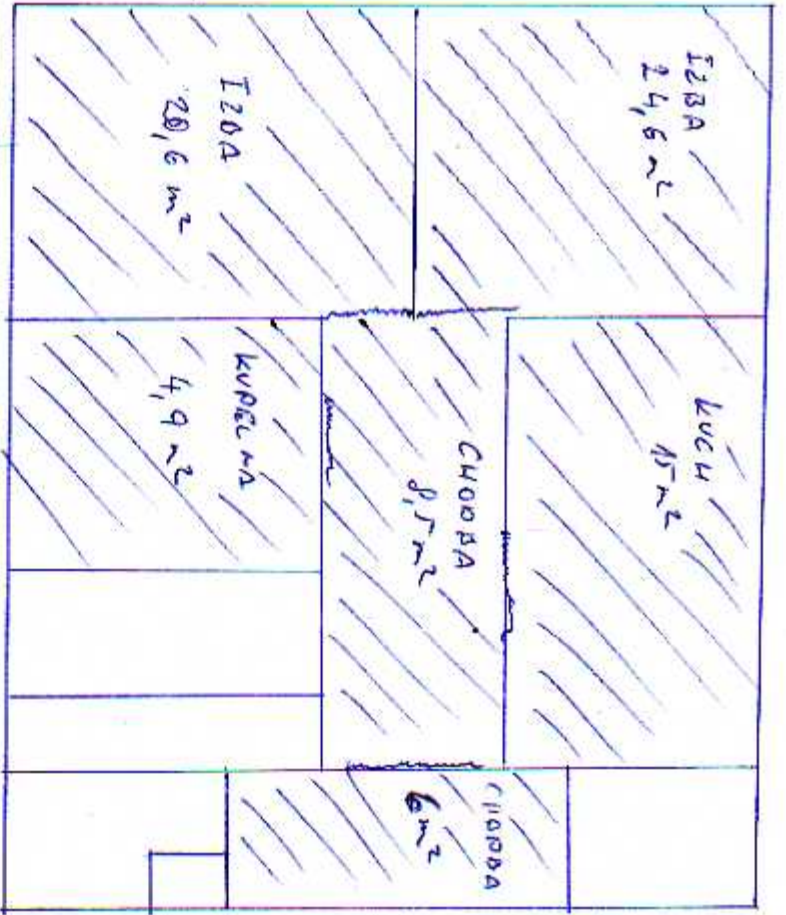 IZBA
24,6 m²
IZBA
20,6 m²
KUCH
15 m²
CHODBA
8,5 m²
KUPELNA
4,9 m²
CHODBA
6 m²